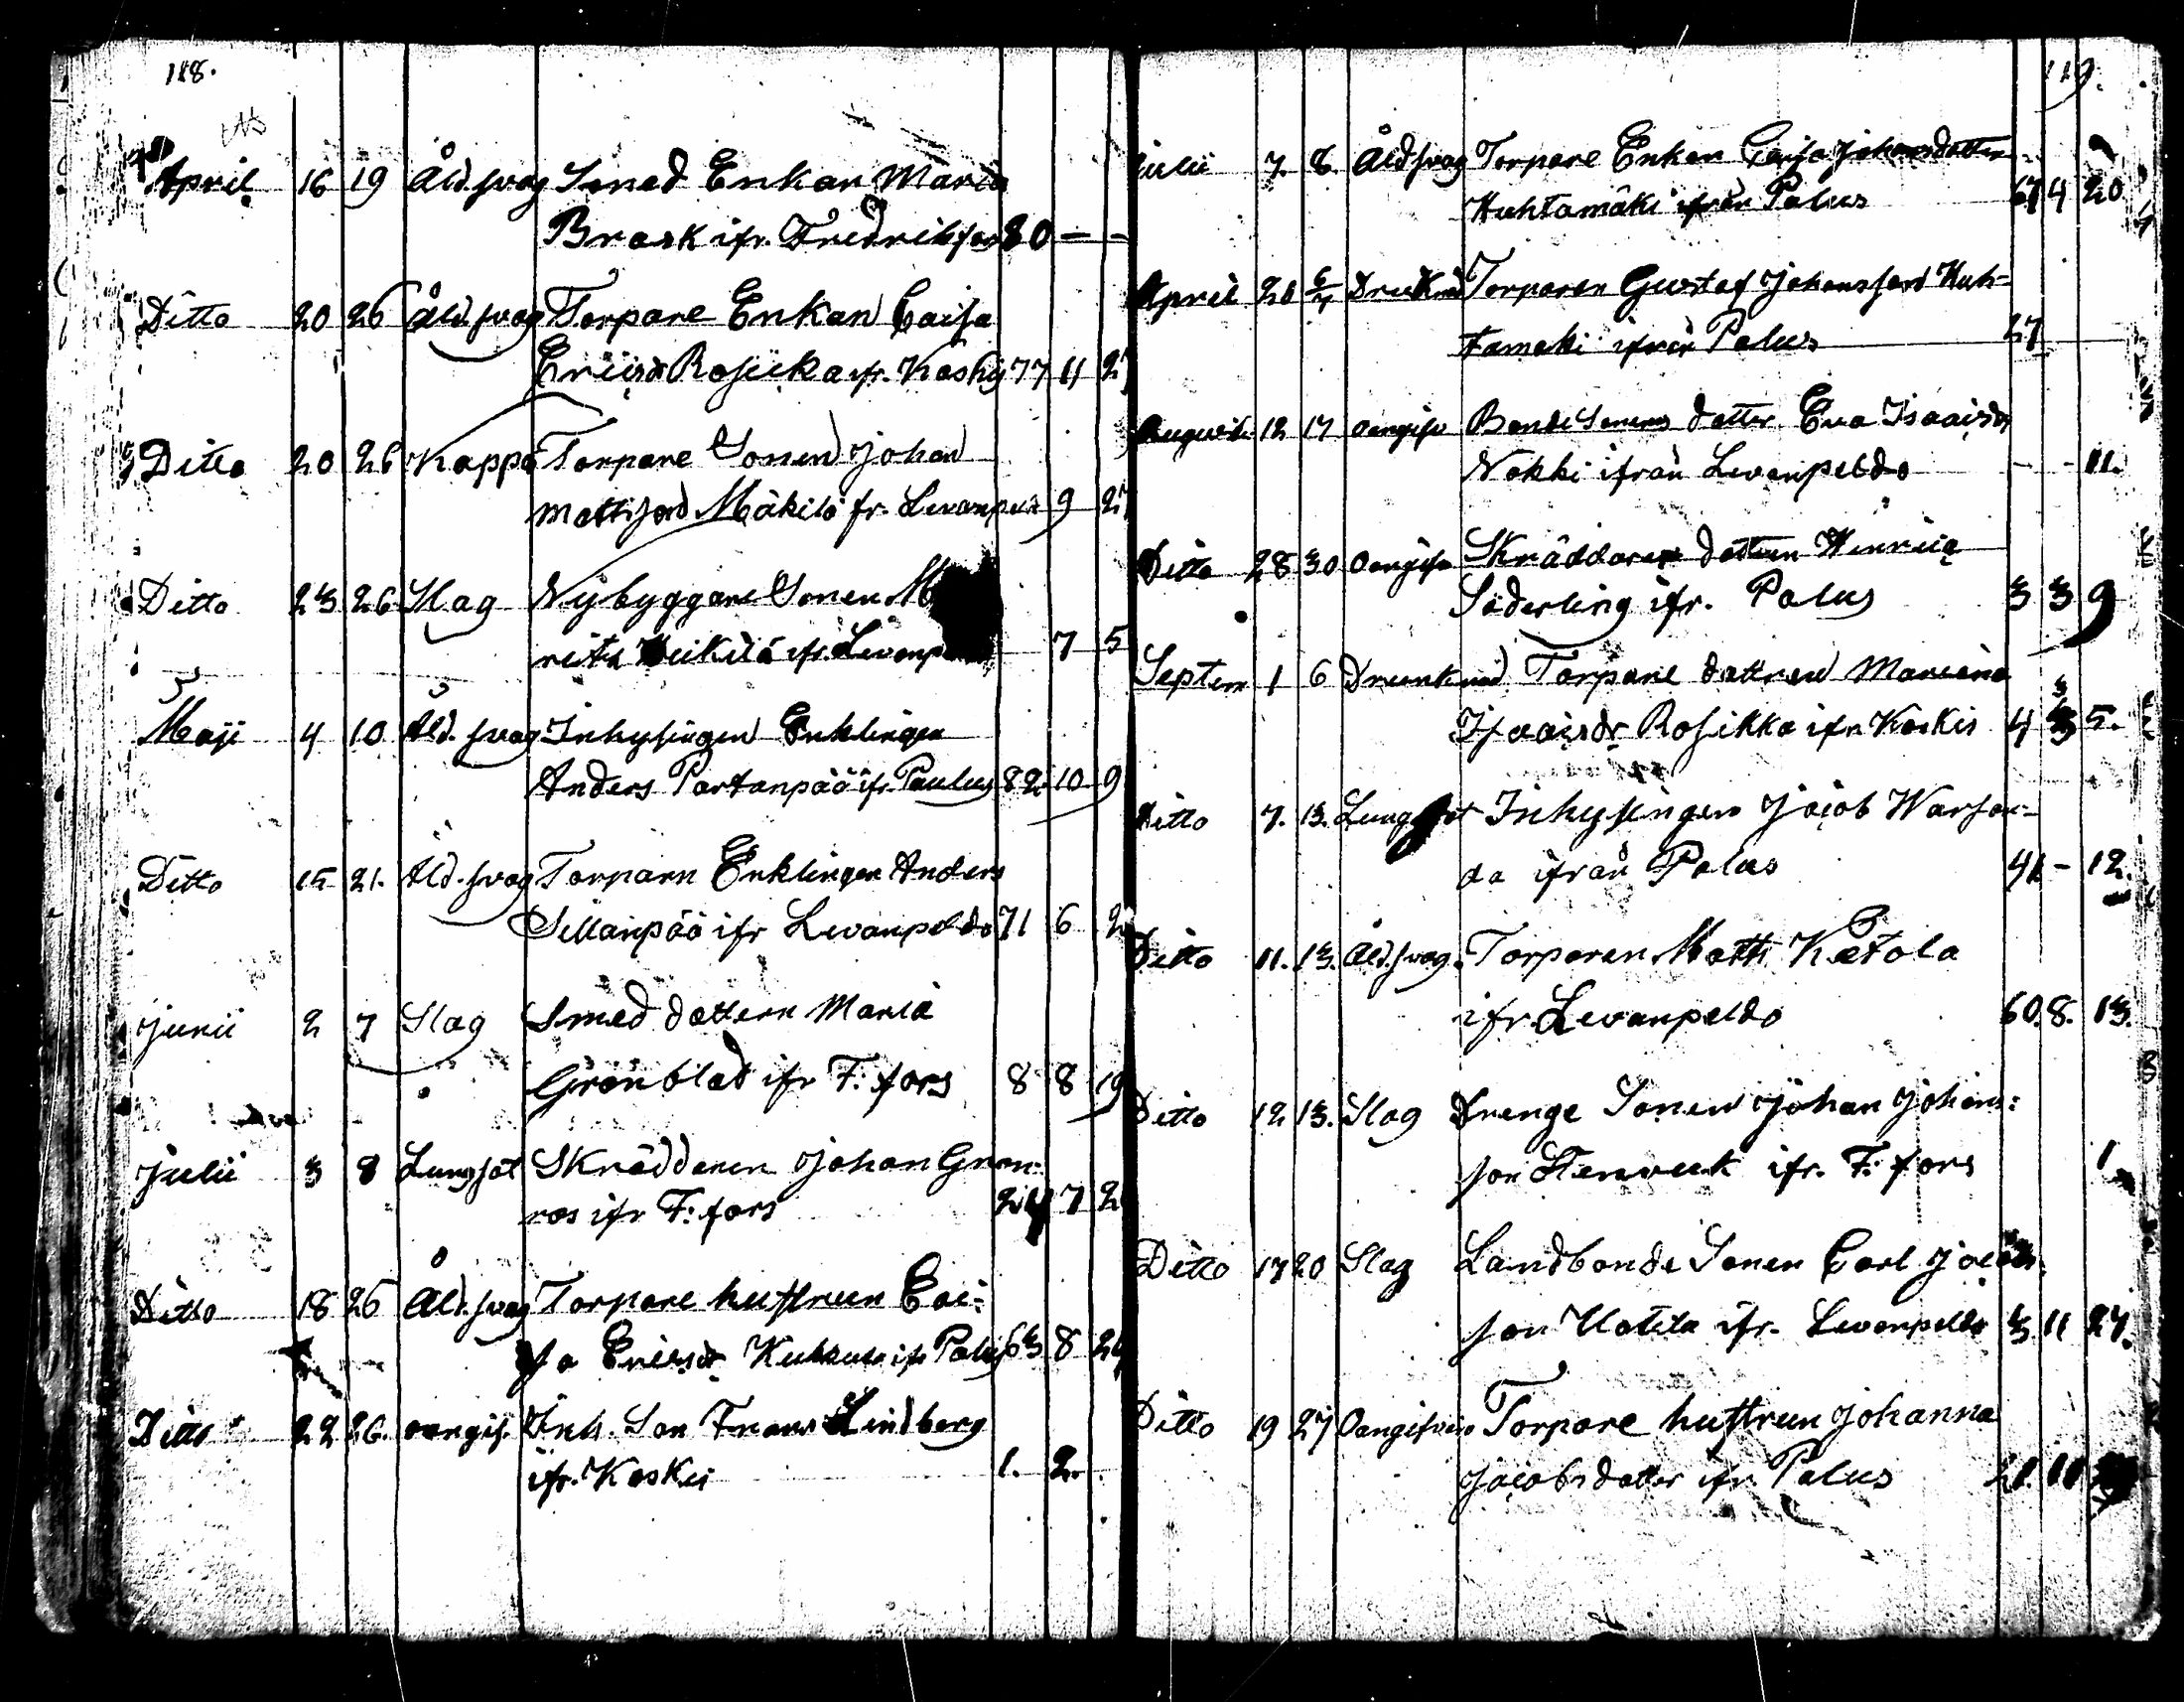 118.
April 16 19 Åld. svag Smed Enkan Maria
Brask ifr. Fredriksfors 80 – –
Ditto 20 26 Åld. svag Torpare Enkan Caisa
Ericsdr Rosiika ifr. Koskis 77 11 27
Ditto 20 26 Koppor Torpare Sonen Johan
Mattsson Mäkilä fr. Levanpeldo 9 27
Ditto 23 26 Slag Nybyggare Sonen
ifr. Levanp 7 5
Maji 4 10 Åld. svag Inhysingen Enklingen
Anders Partanpää ifr. Paulus 82 10 9
Ditto 15 21. Åld. svag Torparn Enklingen Anders
Sillanpää ifr Levanpeldo 71 6
Junii 2 7 Slag Smed dottern Maria
Grönblad ifr F: fors 8 8 19
Julii 3 8 Lungsot Skräddaren Johan Gran-
ros ifr F: fors 24 7
Ditto 18 26 Åld. svag Torpare hustrun Cai-
sa Ericsdr ifr Palus 63 8
Ditto 22 26. oangif. Inh. Son Frans Lindberg
ifr. Koskis 1. 2.
119.
Julii 7. 8. Åld svag Torpare Enkan Caisa Johansdotter
Huhtamäki ifrån Palus 67 4 20
April 26 Drunknad Torparen Gustaf Johansson Huh-
tamäki ifrån Palus 27
Augusti 12 17 oangifv Bonde Sonens dotter Eva Isaacsdr
Nokki ifrån Levanpeldo – – 11.
Ditto 28 30 Oangifv Skräddare dottren Henrica
Söderling ifr. Palus 3 3 9
Septem 1 6 Drunknad Torpare dottren Mariana
Isaacsdr Rosikka ifr. Koskis 4 3 5.
Ditto 7. 13. Lungsot Inhysingen Jacob Warsan-
da ifrån Palus 41 – 12.
Ditto 11. 13. Åld. svag. Torparen Matts Ketola
ifr. Levanpeldo 60. 8. 13.
Ditto 12 13. Slag Drenge Sonen Johan Johans:
son Stenvik ifr. F: fors 1
Ditto 17 20 Slag Landbonde Sonen Carl Jacobs:
son Uotila ifr. Levanpeldo 3 11 27.
Ditto 19 27 Oangifven Torpare hustrun Johanna
Jacobsdotter ifr. Palus 21. 10